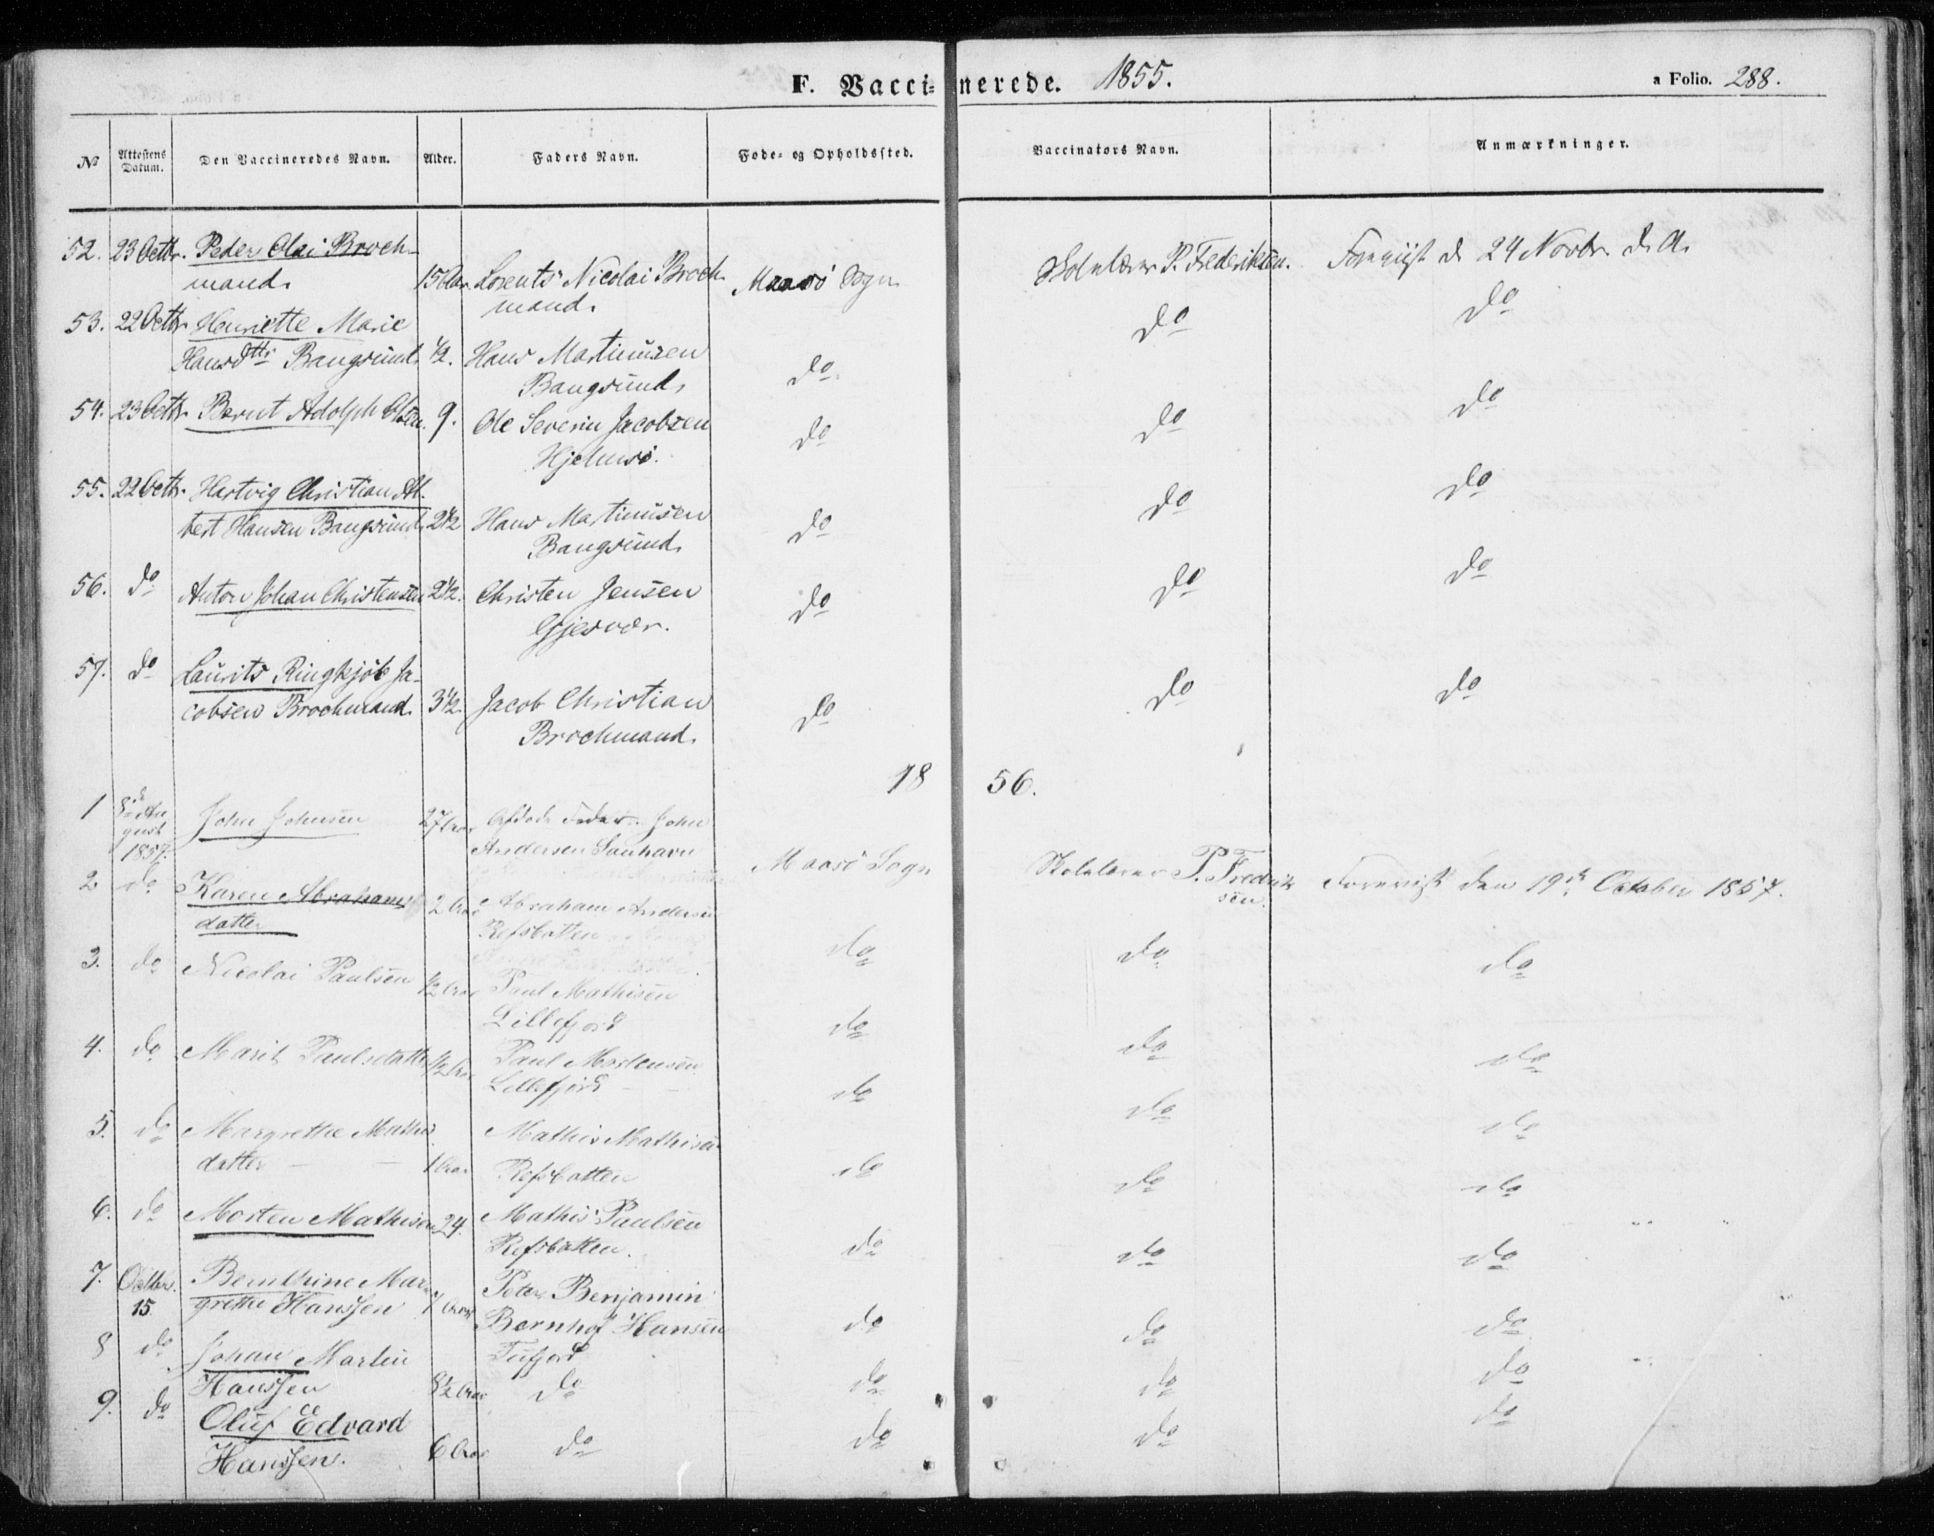 F. Vaccinerede. 1855. a Folio. 288.
No Attestens Datum. Den Vaccineredes Navn. Alder. Faders Navn. Føde- og Opholdssted. Vaccinators Navn. Anmærkninger.
52. 23 Octbr. Peder Olai Broch-
mand. 15 Aar Lorents Nicolai Broch- Maasö Sogn Skolelærer P. Frederiksen. Foreviist d. 24 Novbr. d. A.
mand.
53. 22 Octbr. Henriette Marie do do
Hansdttr Bangsund. 1/2. Hans Martinusen
Bangsund. do
54. 23 Octbr. Bernt Adolph Olsen. 9. Ole Severin Jacobsen do do do
Hjelmsö.
55. 22 Octbr. Hartvig Christian Al-
bert Hansen Bangsund. 2 1/2 Hans Martinusen do do do
Bangsund.
56. do Anton Johan Christensen 2 1/2. Christen Jensen do do do
Gjesvær.
57. do Laurits Ringkjöb Ja-
cobsen Brochmand. 3 1/2. Jacob Christian do do do
Brochmand.
1856.
1 8de August 1857. John Johnsen 27 Aar Afdøde Fader John
Andersen Maasö Sogn Skolelærer P. Fredrik
sen. Foreviist den 19de October 1857.
2 do Karen Abrahams
datter 2 Aar Abraham Andersen
Refsbotten do do do
3. do Nicolai Paulsen 1/2 Aar Paul Mathisen
Lillefjord do do do
4. do Marit Paulsdatter 1/2 Aar Paul Mortensen
Lillefjord do do do
5. do Margrethe Mathis
datter 1 Aar Mathis Mathisen
Refsbotten do do do
6. do Morten Mathisen 24. Mathis Paulsen
Refsbotten. do do do
7. Octbr. 15 Bernthine Mar
grethe Hanssen Aar Peter Benjamin
Bernhof Hansen
Tufjord do do do
8 do Johan Martin
Hanssen 8 1/2 Aar do do do do
9. do Oluf Edvard
Hanssen. 6 Aar do do do do